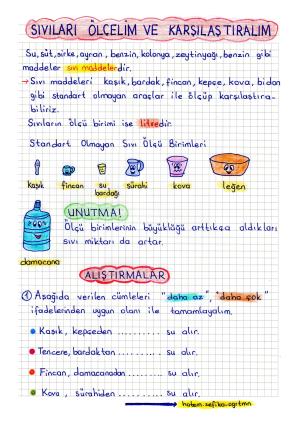 SIVILARI ÖLÇELİM VE KARŞILAŞTIRALIM
Su, süt, sirke, ayran, benzin, kolonya, zeytinyağı, benzin gibi
maddeler sıvı maddelerdir.
→ Sıvı maddeleri kaşık, bardak, fincan, kepçe, kova, bidon
gibi standart olmayan araçlar ile ölçüp karşılaştıra-
biliriz.
Sıvıların ölçü birimi ise litredir.
Standart Olmayan Sıvı Ölçü Birimleri
kaşık fincan su bardağı sürahi kova leğen
UNUTMA!
Ölçü birimlerinin büyüklüğü arttıkça aldıkları
sıvı miktarı da artar.
damacana
ALIŞTIRMALAR
1 Aşağıda verilen cümleleri "daha az", "daha çok"
ifadelerinden uygun olanı ile tamamlayalım.
• Kaşık, kepçeden .......... su alır.
• Tencere, bardaktan .......... su alır.
• Fincan, damacanadan .......... su alır.
• Kova, sürahiden .......... su alır.
→ hatem.sefika.ogrtmn